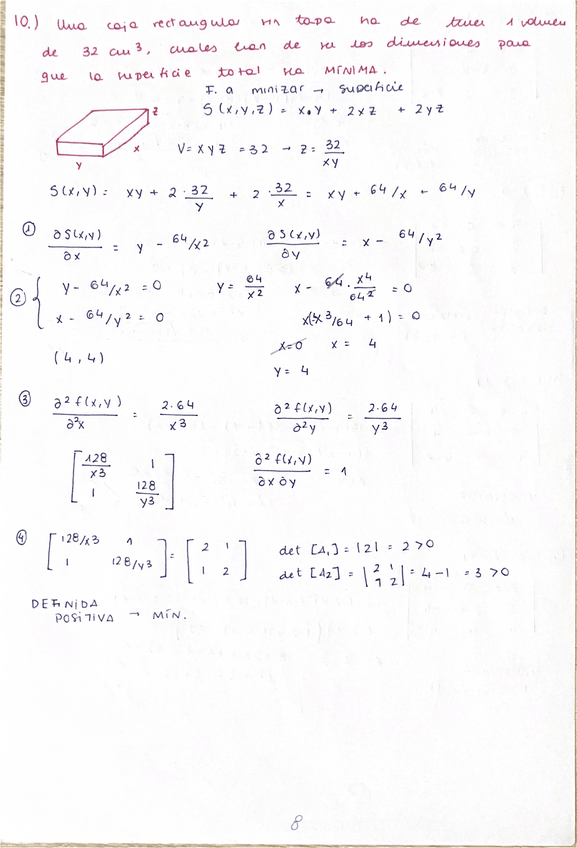 10.) Una caja rectangular sin tapa ha de tener 1 volumen
de 32 cm³, cuales han de ser las dimensiones para
que la superficie total sea MÍNIMA.
F. a minizar → superficie
S(x,y,z) = x·y + 2xz + 2yz
z
x
y
V = xyz = 32 → z = 32/xy
S(x,y) = xy + 2·32/y + 2·32/x = xy + 64/x + 64/y
① ∂S(x,y)/∂x = y - 64/x² ∂S(x,y)/∂y = x - 64/y²
② { y - 64/x² = 0 y = 64/x² x - 64·x⁴/64² = 0
x - 64/y² = 0 x(x³/64 + 1) = 0
(4,4) x=0 x = 4
y = 4
③ ∂²f(x,y)/∂²x = 2·64/x³ ∂²f(x,y)/∂²y = 2·64/y³
[128/x³ 1
1 128/y³] ∂²f(x,y)/∂x∂y = 1
④ [128/x³ 1 = [2 1 det [A₁] = |2| = 2 > 0
1 128/y³] 1 2] det [A2] = |2 1 1 2| = 4-1 = 3 > 0
DEFINIDA
POSITIVA → MÍN.
8